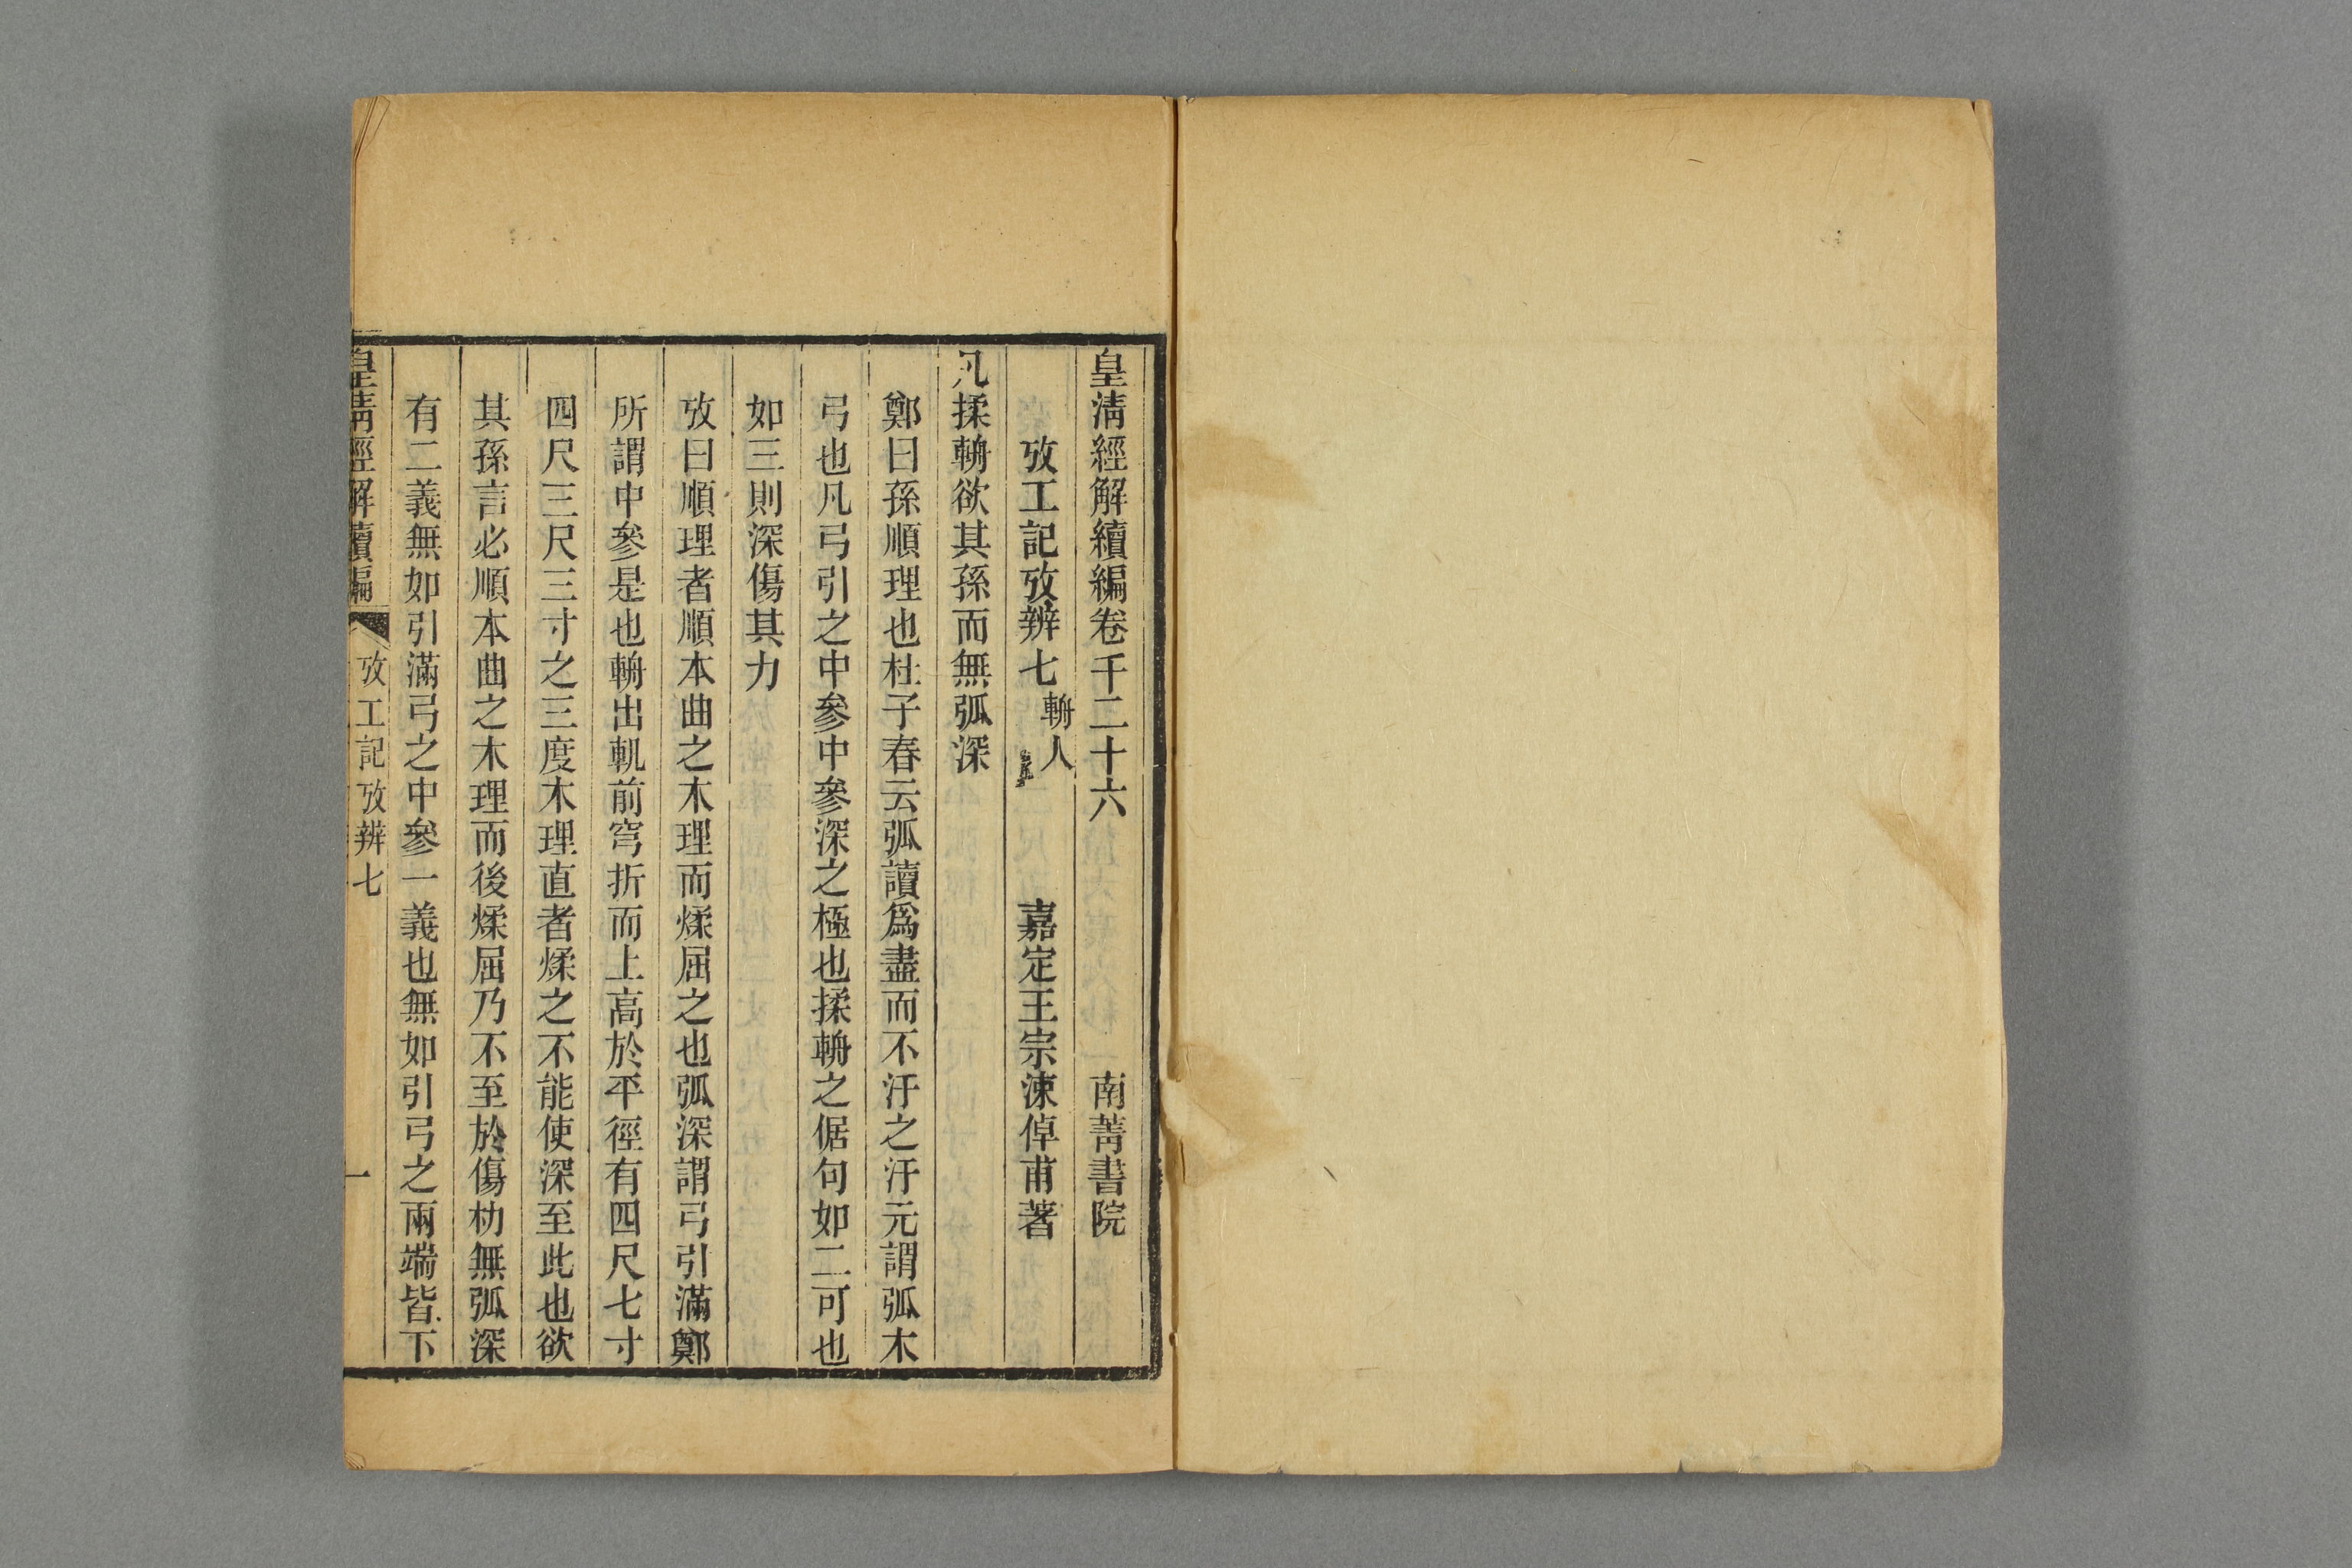 皇淸經解續編卷千二十六　南菁書院
攷工記攷辨七 輈人　嘉定王宗涑倬甫著
凡揉輈欲其孫而無弧深
鄭曰孫順理也杜子春云弧讀爲盡而不汙之汙元謂弧木
弓也凡弓引之中參中參深之極也揉輈之倨句如二可也
如三則深傷其力
攷曰順理者順本曲之木理而煣屈之也弧深謂弓引滿鄭
所謂中參是也輈出軓前穹折而上高於平徑有四尺七寸
四尺三尺三寸之三度木理直者煣之不能使深至此也欲
其孫言必順本曲之木理而後煣屈乃不至於傷朸無弧深
有二義無如引滿弓之中參一義也無如引弓之兩端皆下
皇淸經解續編　攷工記攷辨七　一